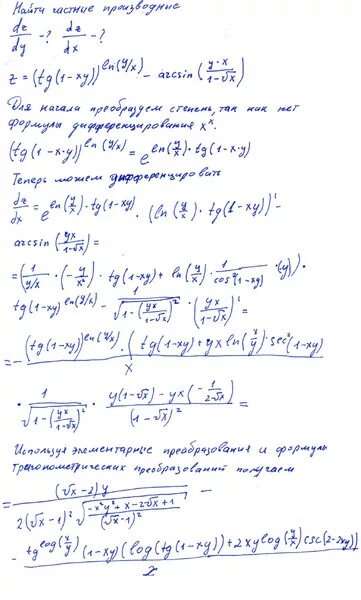 Найти частные производные
dz/dy - ? dz/dx - ?
z = (tg(1-xy))^ln(y/x) - arcsin(y·x/(1-√x))
Для начала преобразуем степень, так как нет
формулы дифференцирования x^x.
(tg(1-x·y))^ln(y/x) = e^ln(y/x)·tg(1-x·y)
Теперь можем дифференцировать
dz/dx = e^ln(y/x)·tg(1-xy) · (ln(y/x)·tg(1-xy))' -
arcsin(yx/(1-√x)) =
= (1/(y/x) · (-y/x²) · tg(1-xy) + ln(y/x) · 1/cos²(1-xy) · (y)) ·
tg(1-xy)^ln(y/x) - 1/√(1-(yx/(1-√x))²) · (yx/(1-√x))' =
= - (tg(1-xy))^ln(y/x) · (tg(1-xy) + yx ln(x/y) · sec²(1-xy) / x
· 1/√(1-(yx/(1-√x))²) · (y(1-√x) - yx(-1/(2√x)))/(1-√x)² =
Используя элементарные преобразования и формулы
тригонометрических преобразований получаем
= (√x-2)y / (2(√x-1)²√((-x²y²+x-2√x+1)/(√x-1)²)) -
- tg^log(x/y) (1-xy)(log(tg(1-xy)) + 2xy log(y/x) csc(2-2xy)) / x